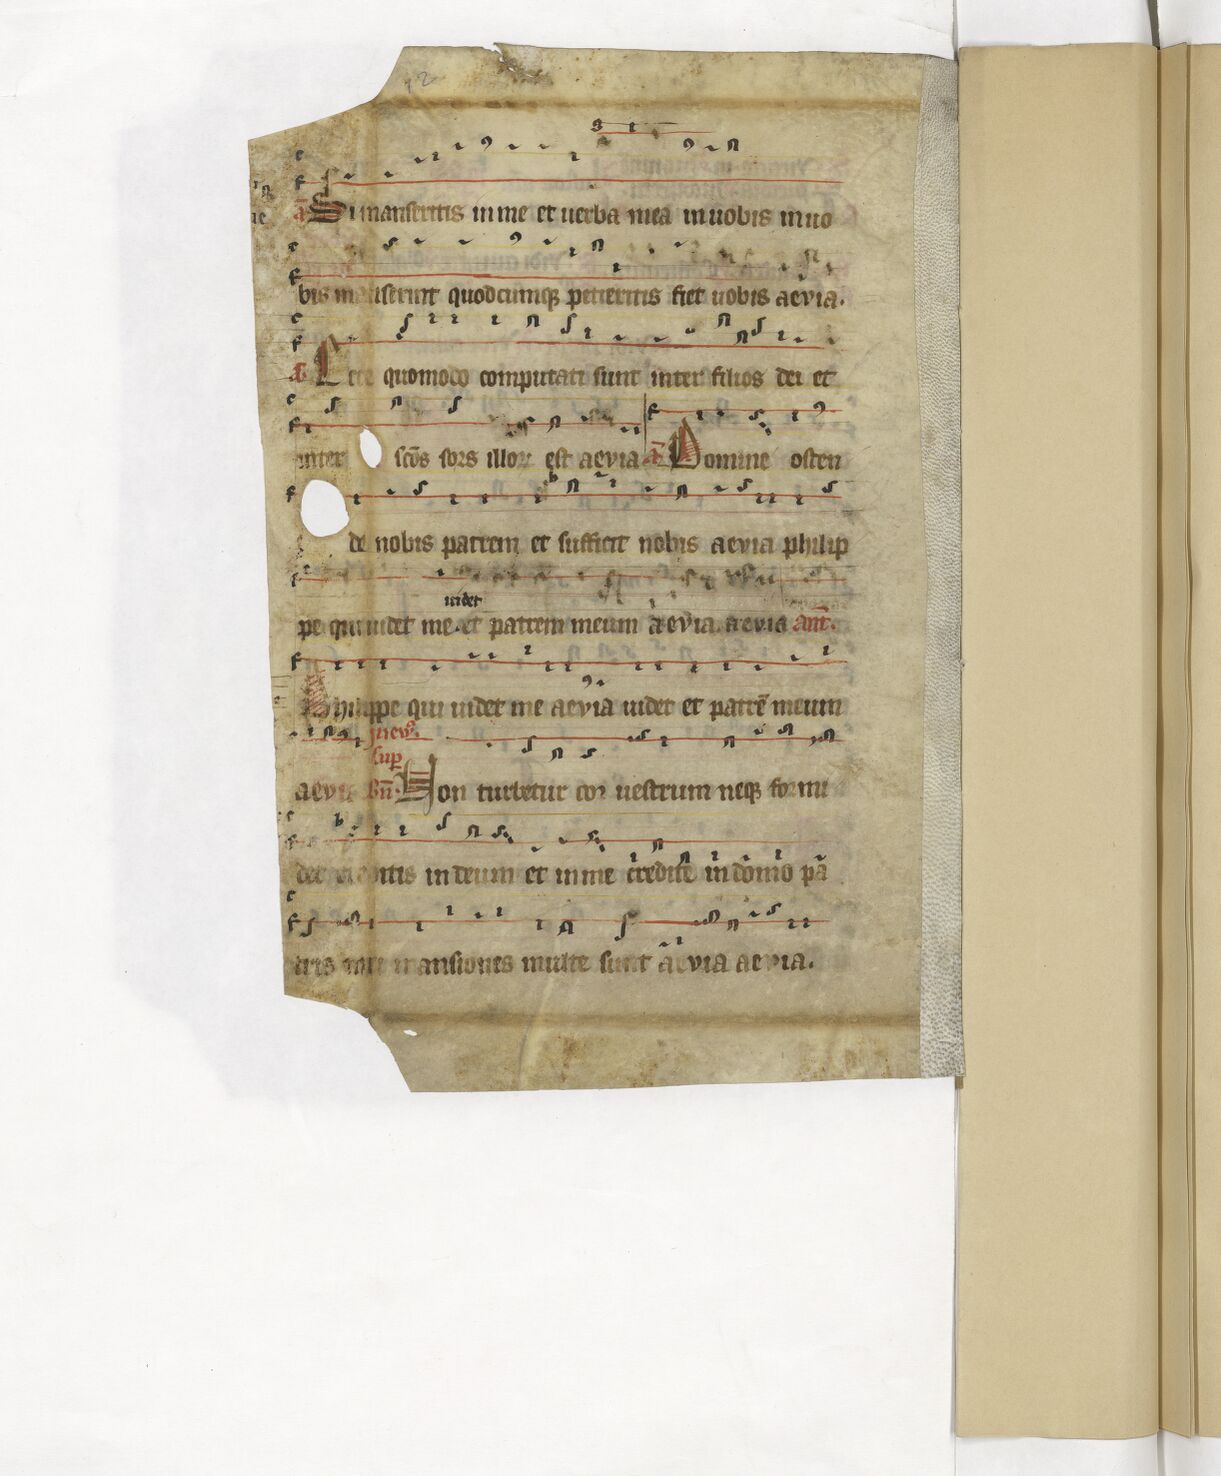 12
a Si manseritis in me et uerba mea in uobis in uo
bis manserint quodcumq; petieritis fiet uobis aevia.
a Ecce quomodo computati sunt inter filios dei et
inter scōs sors illoꝝ est aevia a Domine osten
de nobis patrem et sufficit nobis aevia philip
uidet
pe qui uidet me et patrem meum aevia. aevia ant.
Philippe qui uidet me aevia uidet et patrē meum
aevia
sup
Bn̄. Non turbetur cor uestrum neq; formi
det in deum et in me credite in domo pa
tris mei mansiones multe sunt aevia aevia.